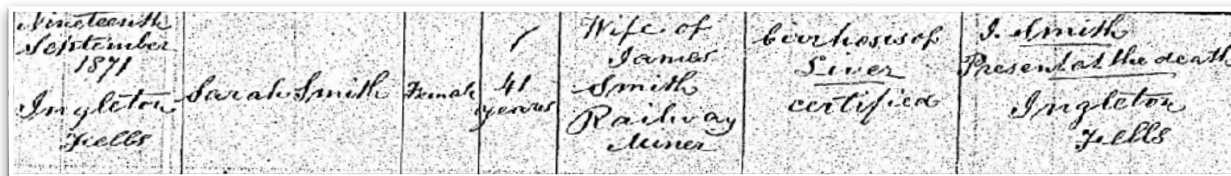 Nineteenth
September
1871
Ingleton
Fells
Sarah Smith
Female
41
years
Wife of
James
Smith
Railway
Miner
Cirrhosis of
Liver
certified
J. Smith
Present at the death
Ingleton
Fells